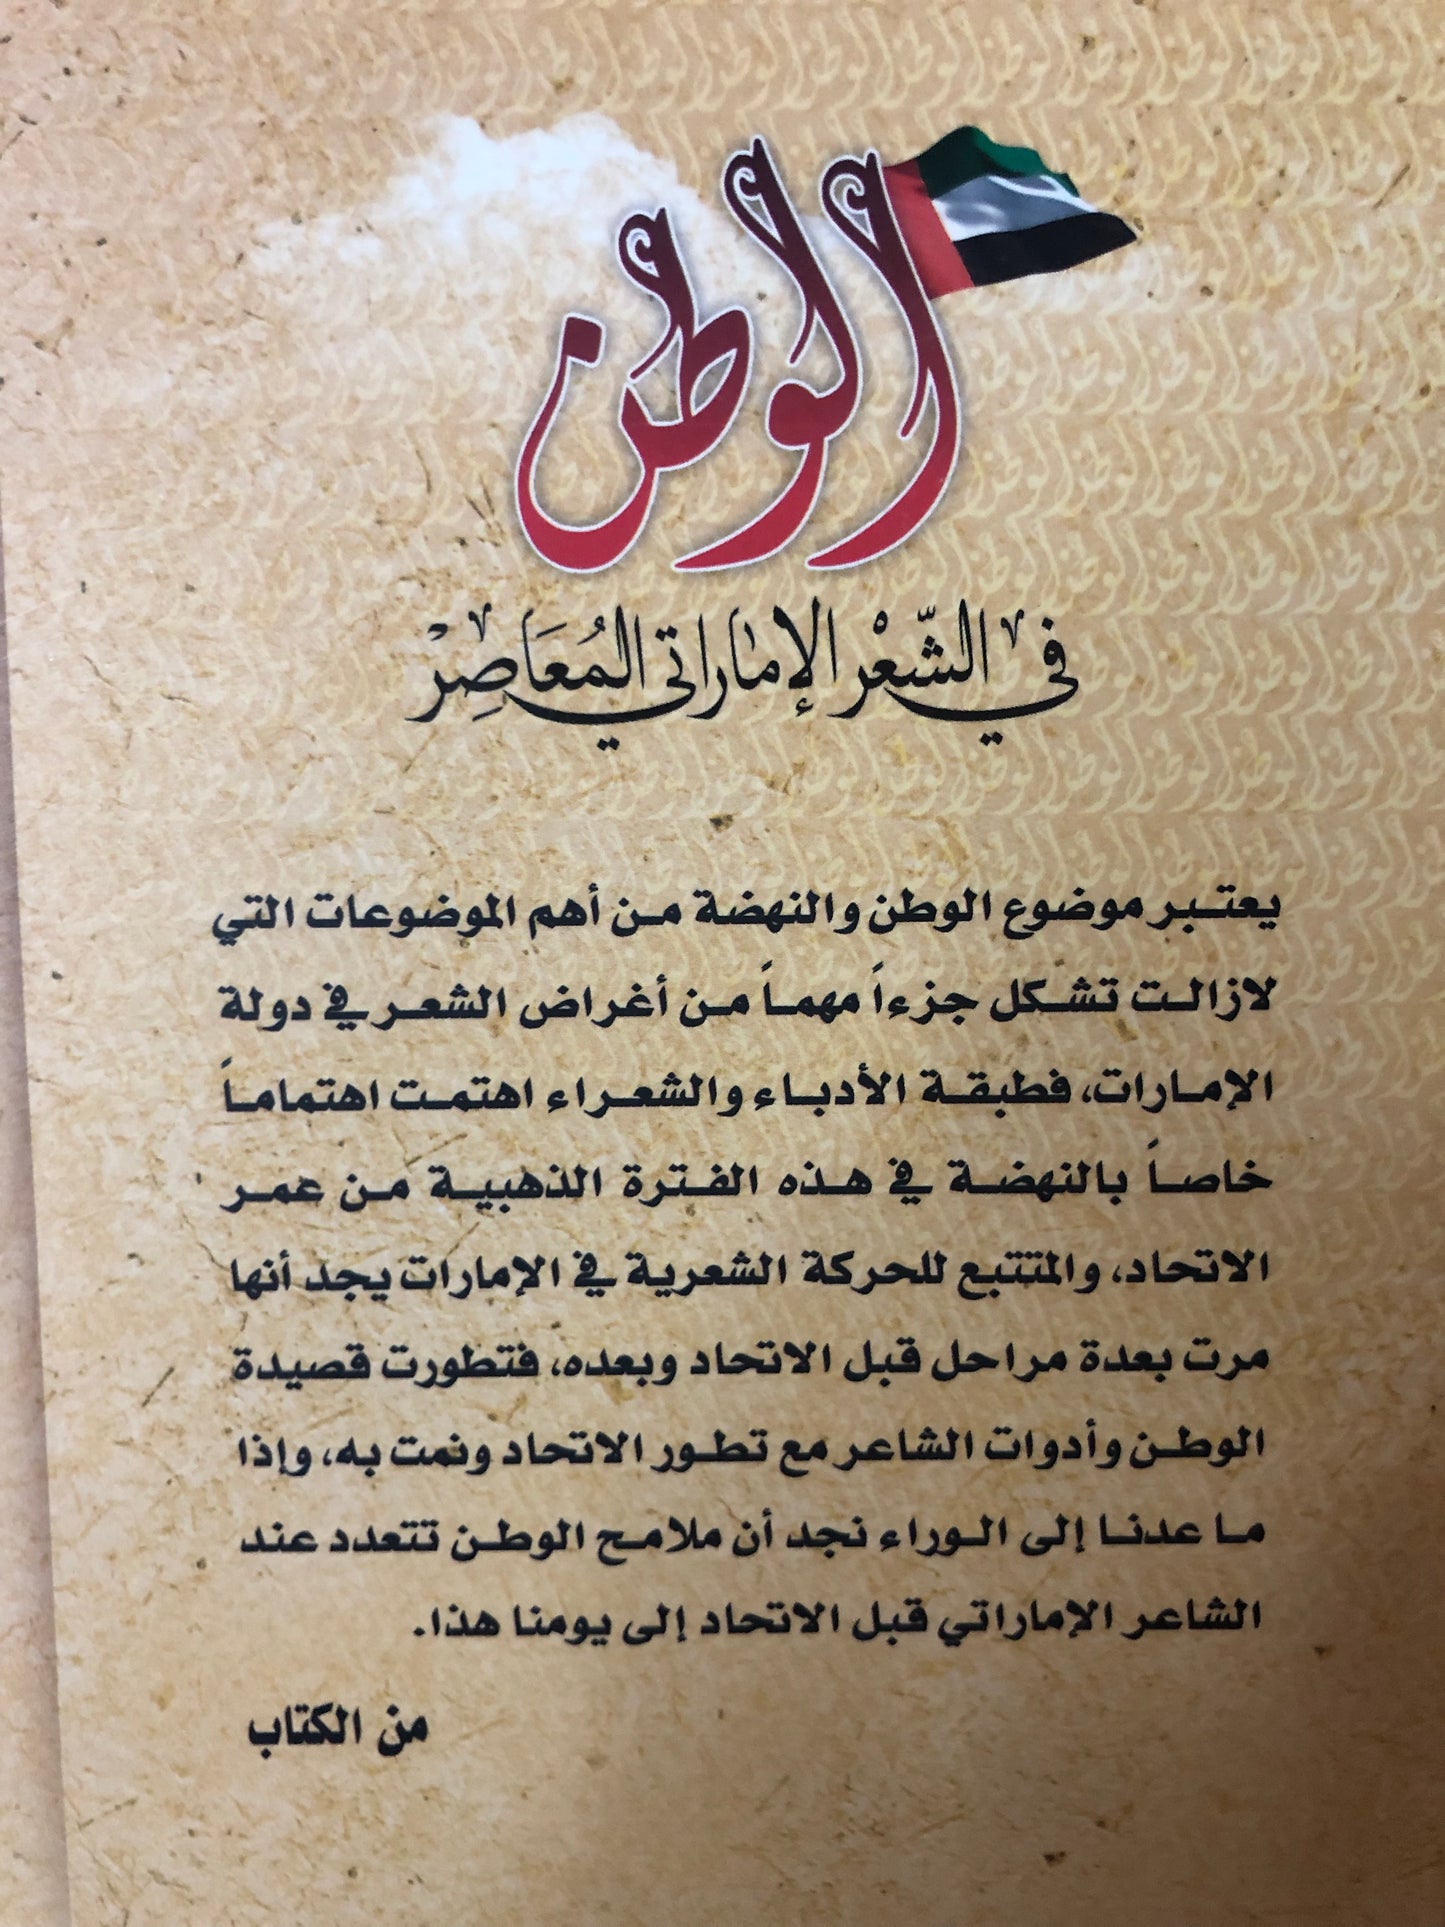 الوطن
في الشّعْر الإماراتي المُعَاصِرْ
يعتبر موضوع الوطن والنهضة من أهم الموضوعات التي
لازالت تشكل جزءاً مهماً من أغراض الشعر في دولة
الإمارات، فطبقة الأدباء والشعراء اهتمت اهتماماً
خاصاً بالنهضة في هذه الفترة الذهبية من عمر
الاتحاد، والمتتبع للحركة الشعرية في الإمارات يجد أنها
مرت بعدة مراحل قبل الاتحاد وبعده، فتطورت قصيدة
الوطن وأدوات الشاعر مع تطور الاتحاد ونمت به، وإذا
ما عدنا إلى الوراء نجد أن ملامح الوطن تتعدد عند
الشاعر الإماراتي قبل الاتحاد إلى يومنا هذا.
من الكتاب